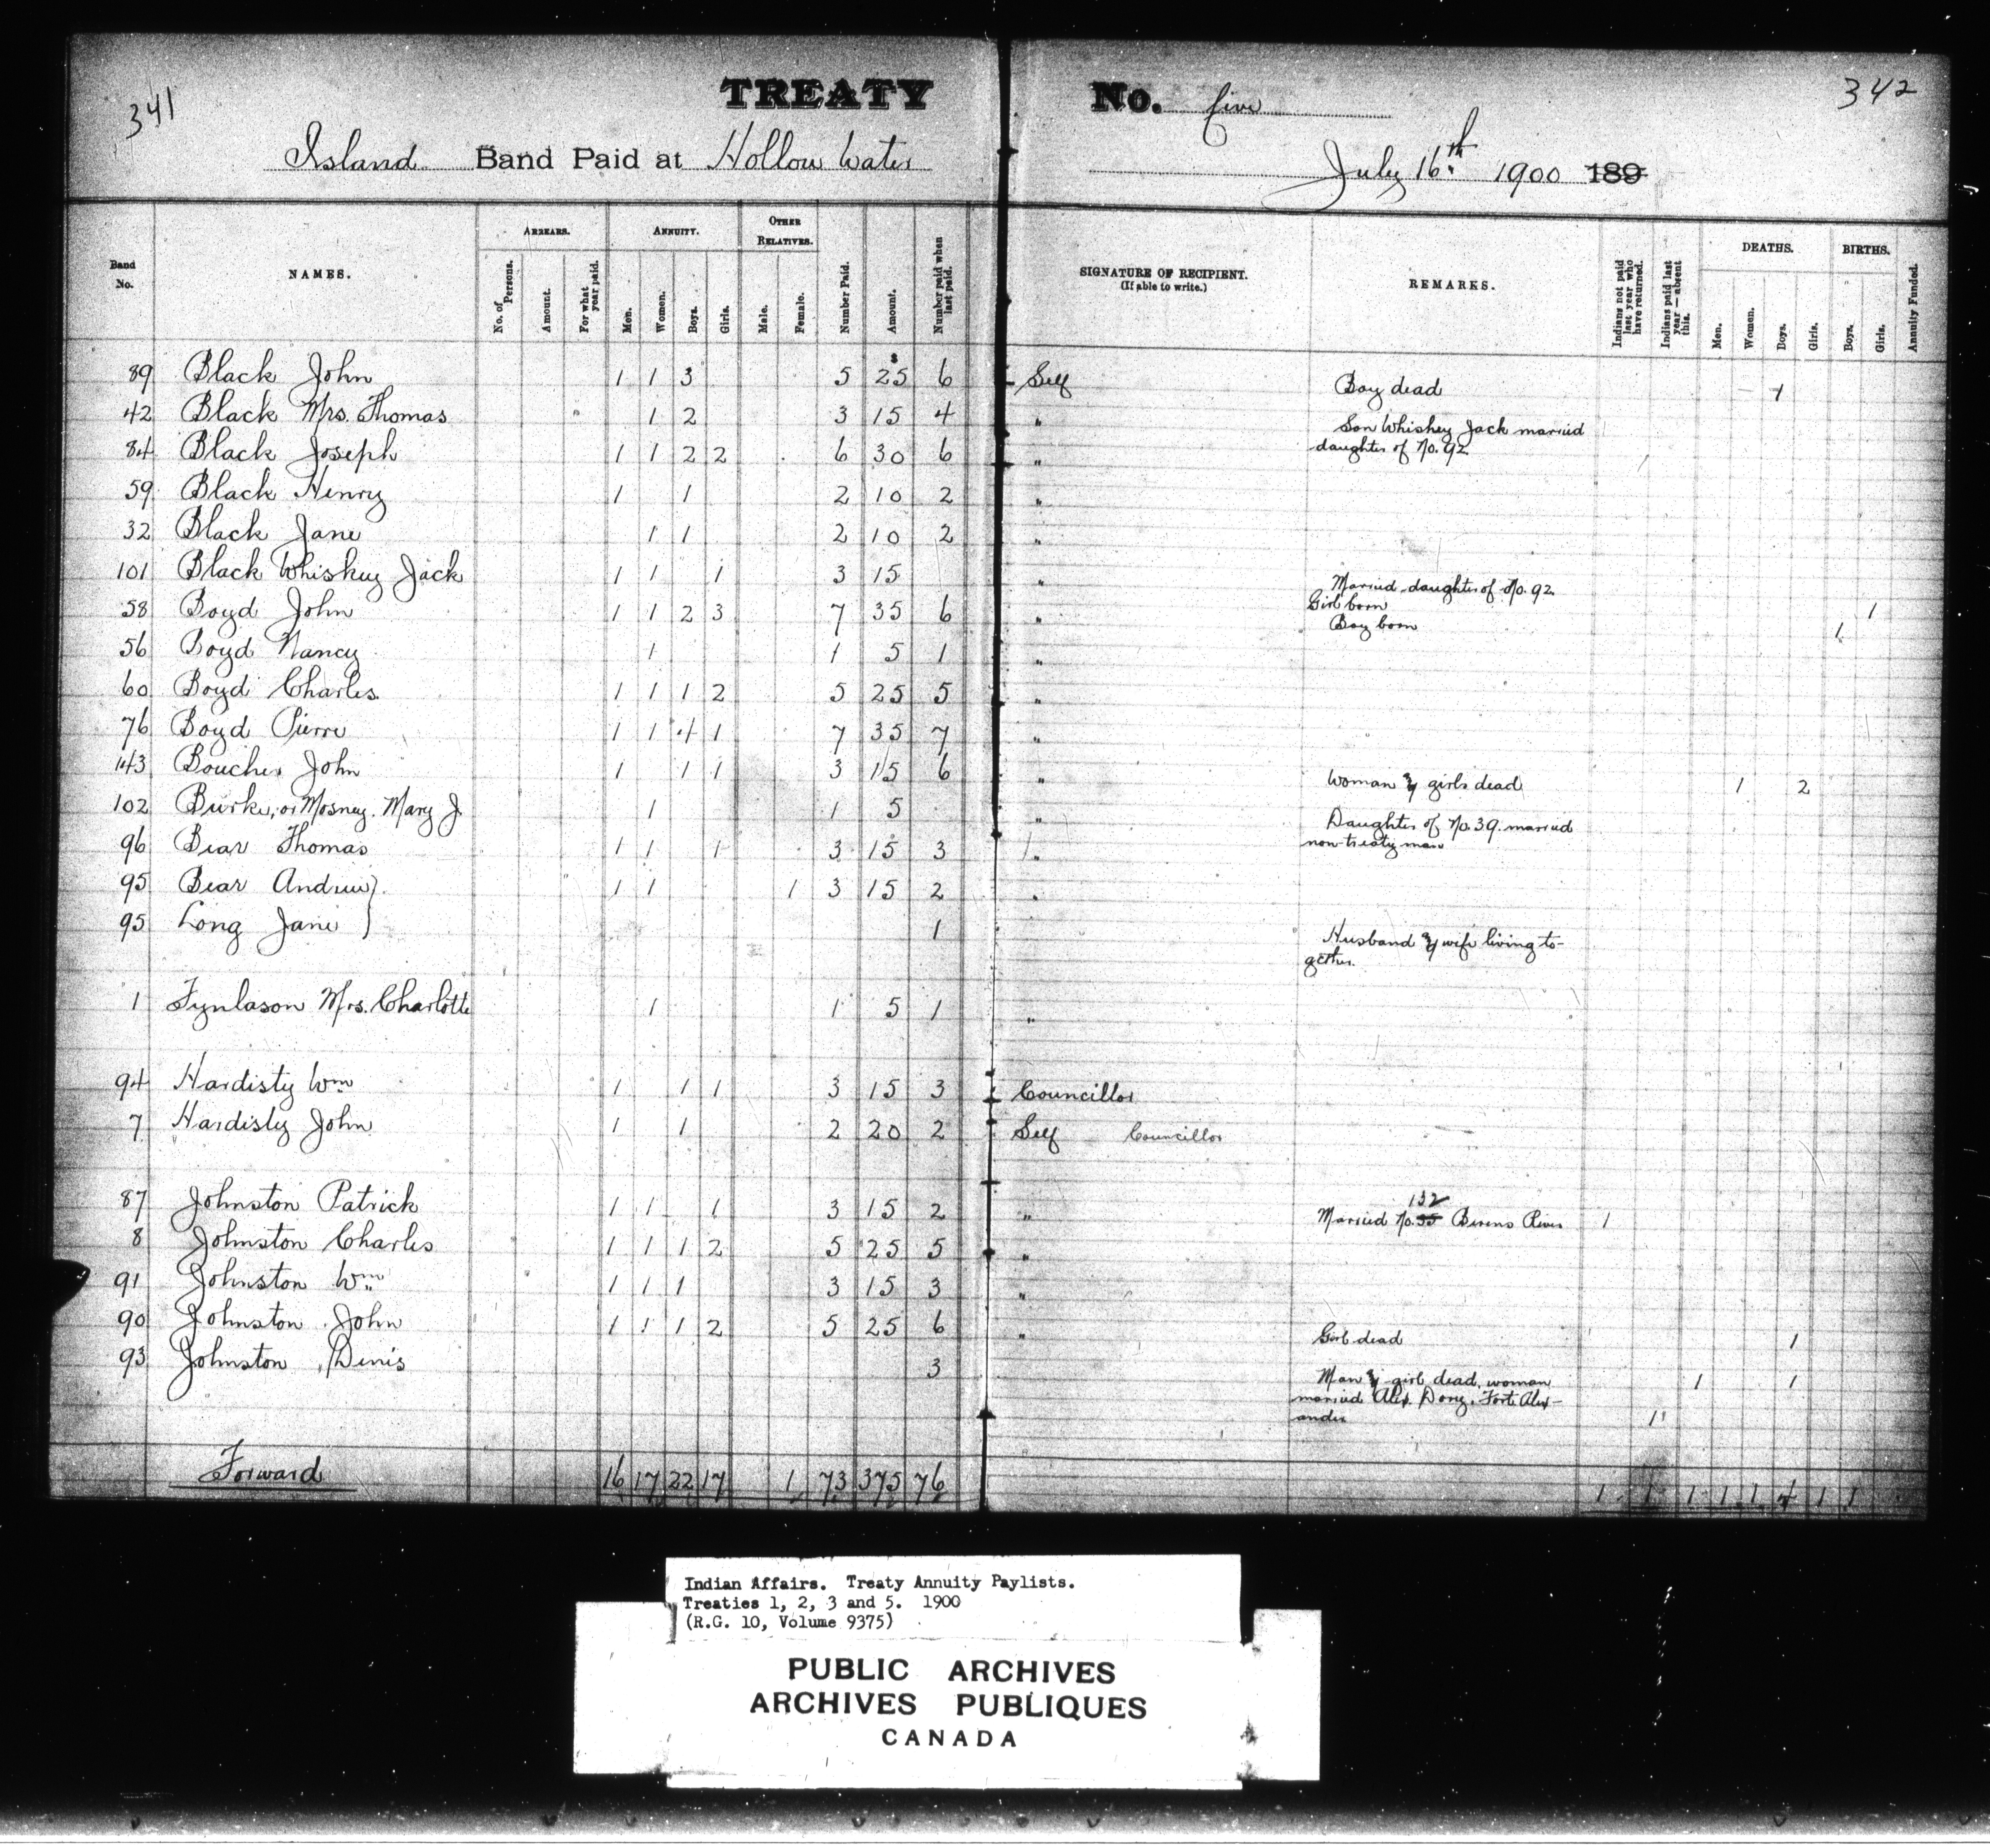 341
TREATY No. five
342
Island Band Paid at Hollow Water
July 16th 1900 189
Band No.
NAMES.
ARREARS.
No. of Persons.
Amount.
For what year paid.
ANNUITY.
Men.
Women.
Boys.
Girls.
OTHER RELATIVES.
Male.
Female.
Number Paid.
Amount.
Number paid when last paid.
SIGNATURE OF RECIPIENT.
(If able to write.)
REMARKS.
Indians not paid last year who have returned.
Indians paid last year—absent this.
DEATHS.
Men.
Women.
Boys.
Girls.
BIRTHS.
Boys.
Girls.
Annuity Funded.
89 Black John 1 1 3 5 $25 6 Self Boy dead 1
42 Black Mrs. Thomas 1 2 3 15 4 " Son Whiskey Jack married
daughter of No. 92.
84 Black Joseph 1 1 2 2 6 30 6 "
59 Black Henry 1 1 2 10 2 "
32 Black Jane 1 1 2 10 2 "
101 Black Whiskey Jack 1 1 1 3 15 " Married daughter of No. 92.
Girl born 1
58 Boyd John 1 1 2 3 7 35 6 " Boy born 1
56 Boyd Nancy 1 1 5 1 "
60 Boyd Charles 1 1 1 2 5 25 5 "
76 Boyd Pierre 1 1 4 1 7 35 7 "
43 Boucher John 1 1 1 3 15 6 " Woman & girls dead 1 2
102 Burke, or Mosney. Mary J. 1 1 5 " Daughter of No. 39. married
non-treaty man
96 Bear Thomas 1 1 1 3 15 3 "
95 Bear Andrew } 1 1 1 3 15 2 "
95 Long Jane } 1 Husband & wife living to-
gether.
1 Fynlason Mrs. Charlotte 1 1 5 1 "
94 Hardisty Wm 1 1 1 3 15 3 Councillor
7 Hardisty John 1 1 2 20 2 Self Councillor
87 Johnston Patrick 1 1 1 3 15 2 " 132
Married No. 35 Berens River 1
8 Johnston Charles 1 1 1 2 5 25 5 "
91 Johnston Wm 1 1 1 3 15 3 "
90 Johnston John 1 1 1 2 5 25 6 " Girl dead 1
93 Johnston Denis 3 Man & girl dead, woman 1 1
married Alex. Dory, Fort Alex-
ander 1
Forward 16 17 22 17 1 73 375 76 1 1 1 1 1 4 1 1
Indian Affairs. Treaty Annuity Paylists.
Treaties 1, 2, 3 and 5. 1900
(R.G. 10, Volume 9375)
PUBLIC ARCHIVES
ARCHIVES PUBLIQUES
CANADA